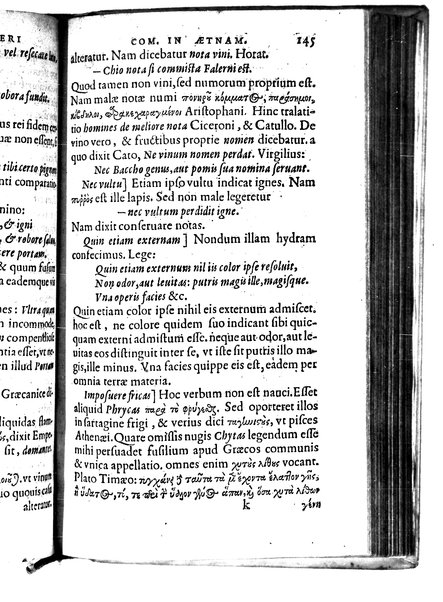 ERI
vel resecare
robora fundit.
rei fidem
non esset,
tibi certo pignore
nti comparatio
nino:
, & igni
& robore
ssere portam.
& quum
a eademque
hes: Vltra quam
n incommode,
mpensantem
en illud Portam
Græcanice
liquidas
dixit
sit, domante.
vt vinum
uo quouis
alterar.
COM. IN ÆTNAM. 145
alteratur. Nam dicebatur nota vini. Horat.
— Chio nota si commista Falerni est.
Quod tamen non vini, sed numorum proprium est.
Nam malæ notæ numi πονηροῦ κόμματος, παράσημοι,
Aristophani. Hinc tralati-
tio homines de meliore nota Ciceroni, & Catullo. De
vino vero, & fructibus proprie nomen dicebatur. a
quo dixit Cato, Ne vinum nomen perdat. Virgilius:
Nec Baccho genus, aut pomis sua nomina seruant.
Nec vultu] Etiam ipso vultu indicat ignes. Nam
est ille lapis. Sed non male legeretur
— nec vultum perdidit igne.
Nam dixit conseruare notas.
Quin etiam externam] Nondum illam hydram
confecimus. Lege:
Quin etiam externum nil iis color ipse resoluit,
Non odor, aut leuitas: putris magis ille, magisque.
Vna operis facies &c.
Quin etiam color ipse nihil eis externum admiscet.
hoc est, ne colore quidem suo indicant sibi quic-
quam externi admistum esse. neque aut odor, aut le-
uitas eos distinguit inter se, vt iste sit putris illo ma-
gis, ille minus. Vna facies quippe eis est, eadem per
omnia terræ materia.
Imposuere fricas] Hoc verbum non est nauci. Esset
aliquid Phrycas παρὰ τὸ φρύγειν. Sed oporteret illos
in sartagine frigi, & verius dici τακτους, vt pisces
Athenæi. Quare omissis nugis Chytas legendum esse
mihi persuadet fusilium apud Græcos communis
& vnica appellatio. omnes enim χυτοὺς λίθους vocant.
Plato Timæo: τυγχάνει ταῦτα μὲν ἔχοντα ἔλαττον γῆς,
ἢ ὕδατος, τό, τε περὶ τὴν ὕαλον γένος ἅπαν, κ̀ ὅσα χυτὰ λίθων
k γένη